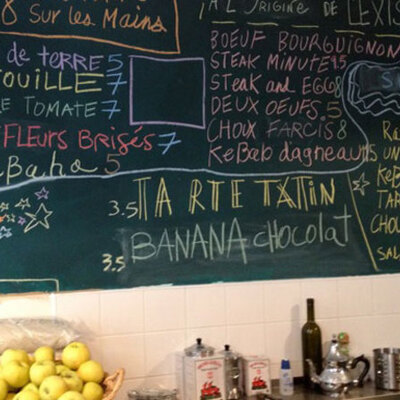 8 Sur les Mains
À L'ORIGINE DE L'EXIS
de terre 5
OUILLE 7
E TOMATE 7
FLEURS BRISÉS 7
BaHa 5
BOEUF BOURGUIGNON
STEAK MINUTE 9.5
STEAK AND EGG 8
DEUX OEUFS. 5
CHOUX FARCIS 8
KeBab d'agneau
3.5 TARTE TATIN
3.5 BANANA chocolat
UN
KeB
TAR
CHOU
SAL